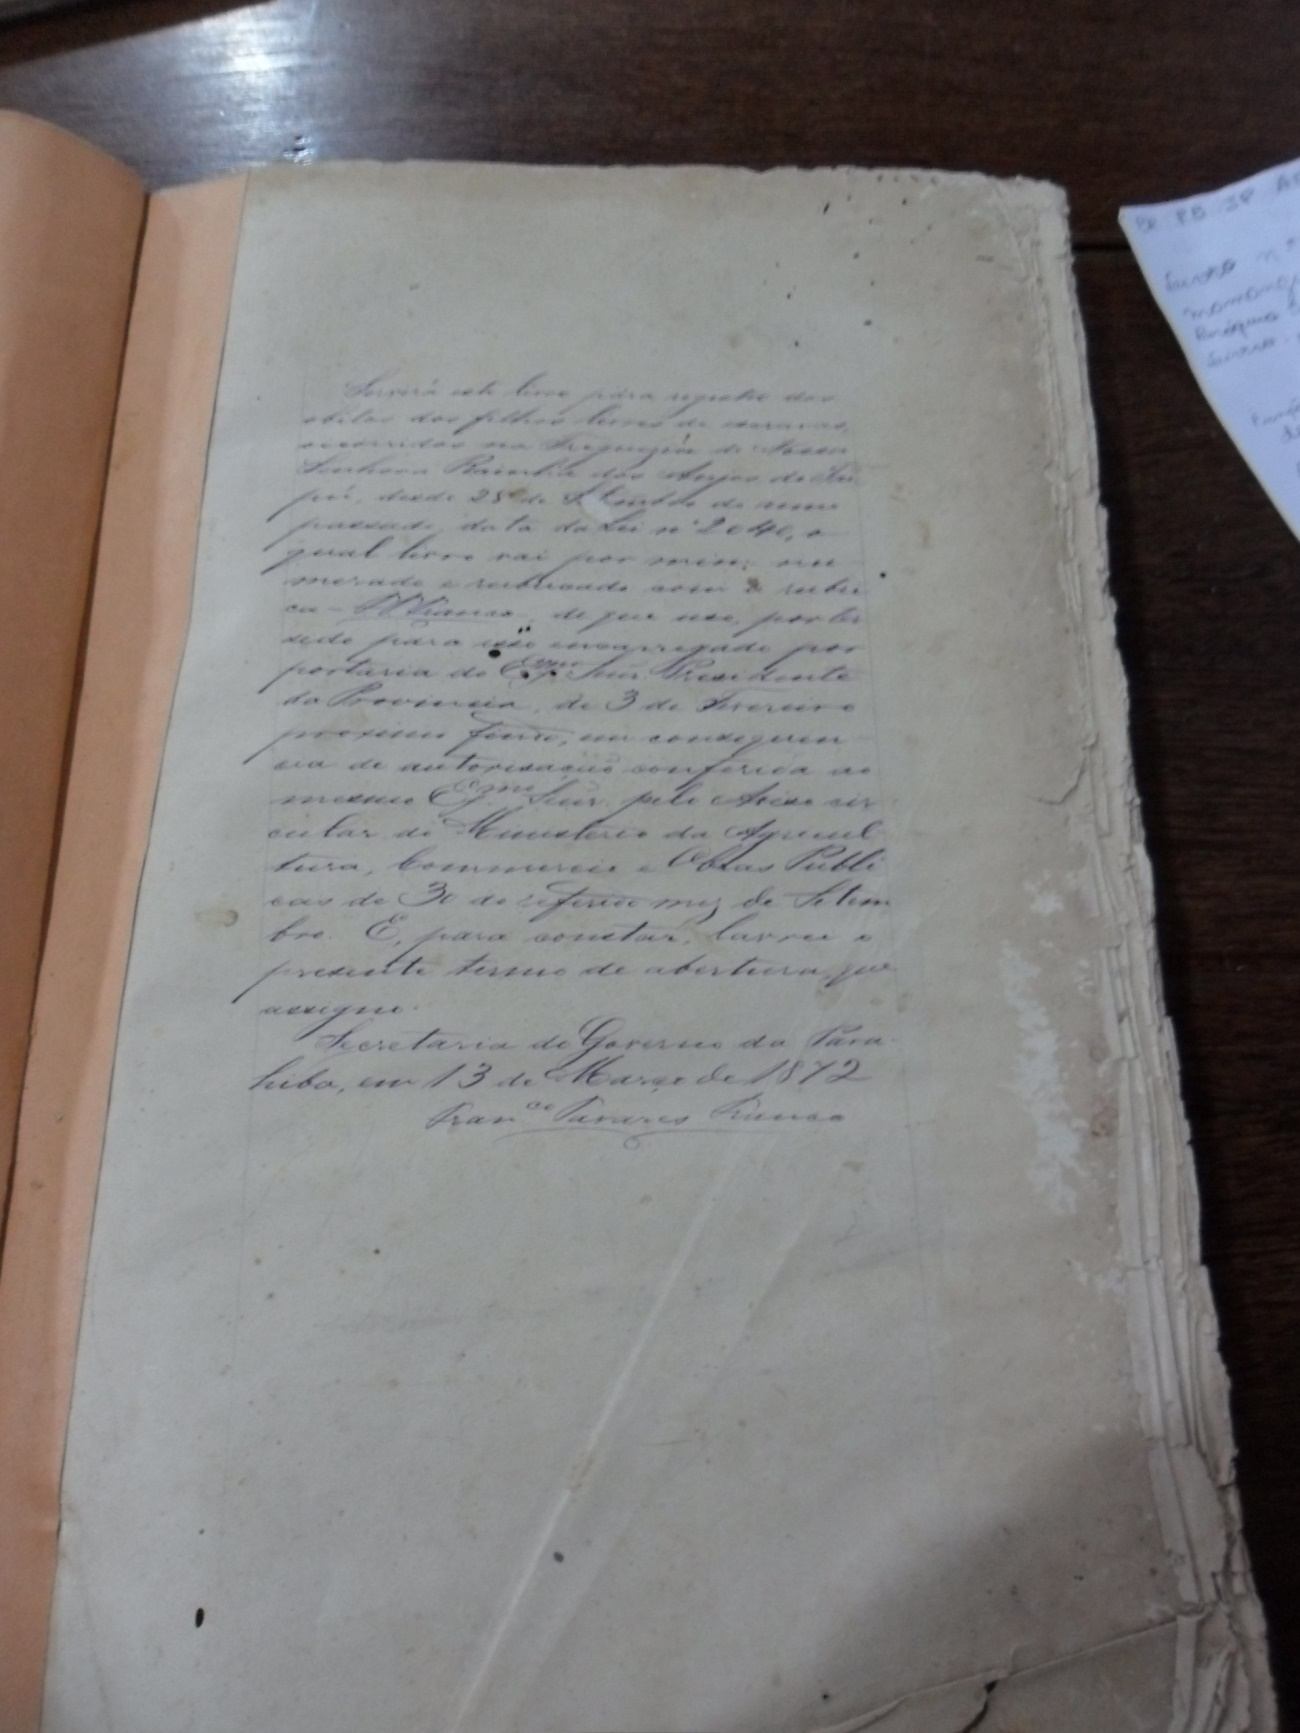 Servirá este livro para registro dos
obitos dos filhos livres de escravas,
occorridos na Freguezia de Nossa
Senhora Rainha dos Anjos de Ta
pú, desde 28 de Setembro do anno
passado, data da Lei nº 2040, o
qual livro vai por mim nu
merado e rubricado com a rubri
ca - Franco, de que uso, por ter
sido para isso encarregado por
portaria do Exmo Snr Presidente
da Provincia, de 3 de Fevereiro
proximo findo, em consequen
cia de autorisação conferida ao
mesmo Exmo Snr. pelo Aviso cir
cular do Ministerio da Agricul
tura, Commercio e Obras Publi
cas de 30 do referido mez de Setem
bro. E, para constar, lavrei o
presente termo de abertura, que
assigno.
Secretaria do Governo da Para-
hiba, em 13 de Março de 1872
Franco Tavares Franco
BR PB
Livro nº